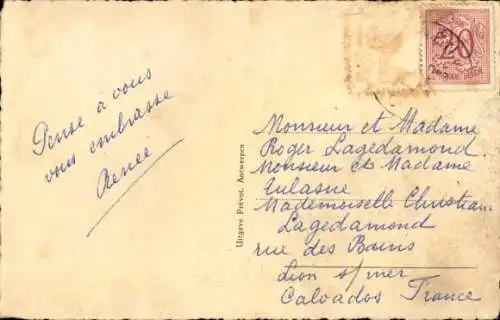 Pense à vous
vous embrasse
Renée
Uitgave Prévot, Antwerpen
20
Monsieur et Madame
Roger Lagedamond
Monsieur et Madame
Aulasne
Mademoiselle Christiane
Lagedamond
rue des Bains
Lion s/mer
Calvados France